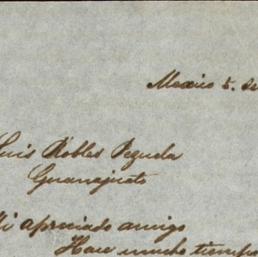 Mexico 5. de
Luis Robles Pezuela
Guanajuato
Mi apreciado amigo
Hace mucho tiempo